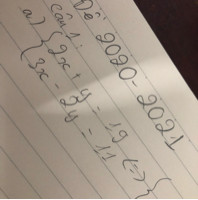 Đề 2020-2021
Câu 1:
a) { 2x + y = 19
3x - 2y = 11 (=) {